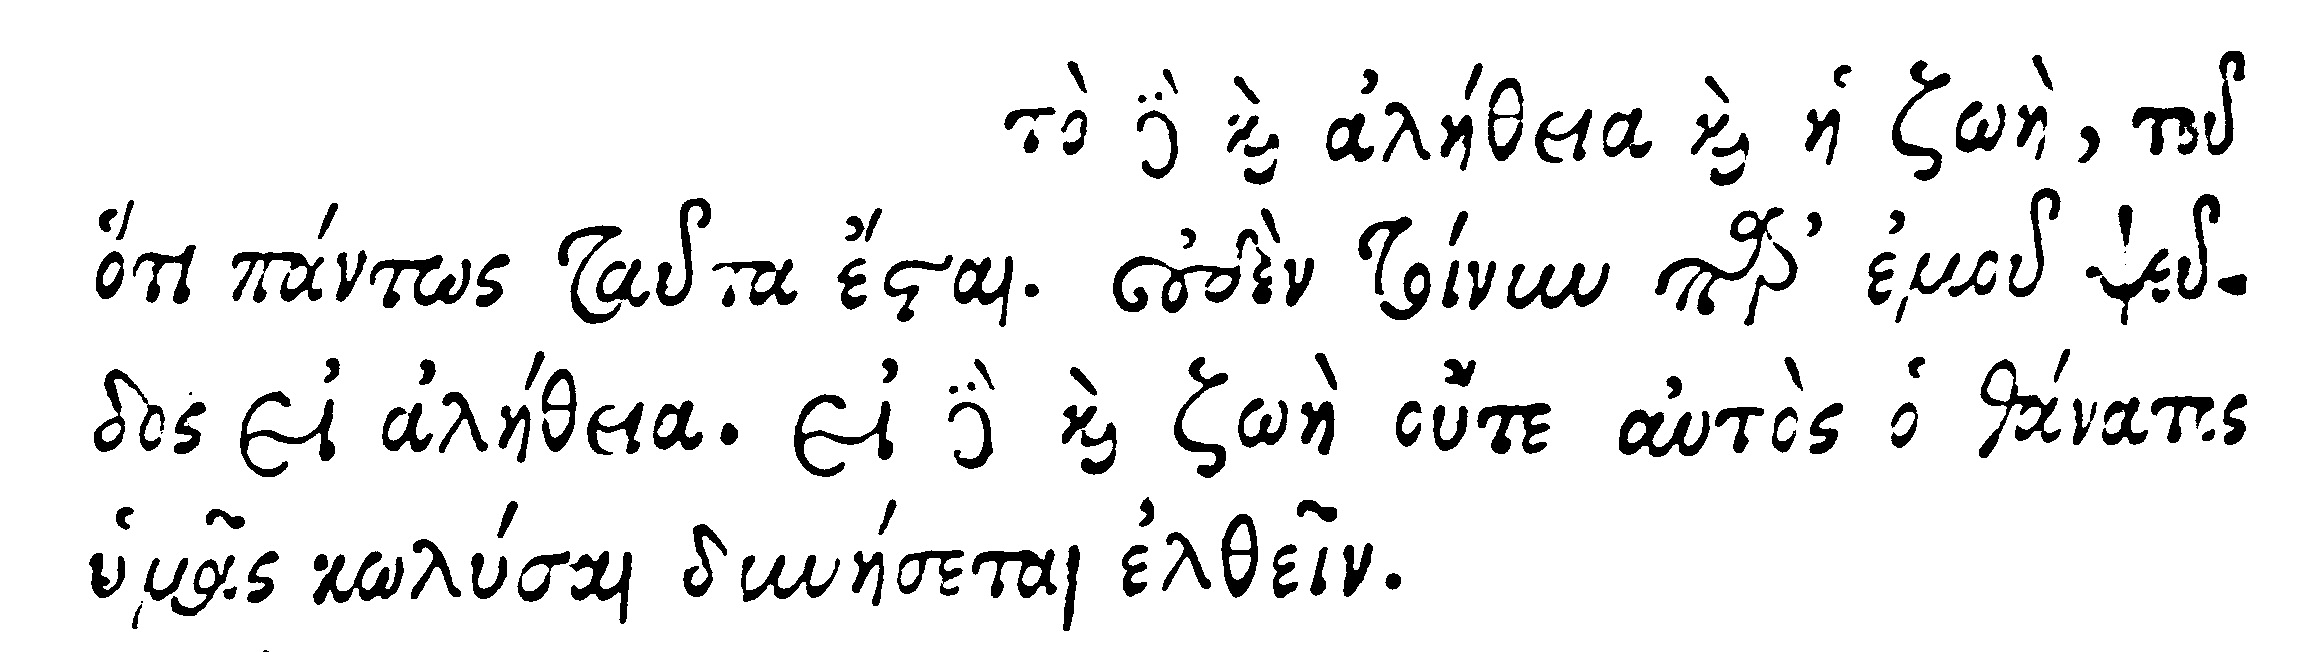 τὸ δὲ καὶ ἀλήθεια καὶ ἡ ζωὴ, τοῦ
ὅτι πάντως ταῦτα ἔσται. οὐδὲν τοίνυν παρ’ ἐμοῦ ψεῦ-
δος εἰ ἀλήθεια. εἰ δὲ καὶ ζωὴ οὔτε αὐτὸς ὁ θάνατος
ὑμᾶς κωλύσαι δυνήσεται ἐλθεῖν.